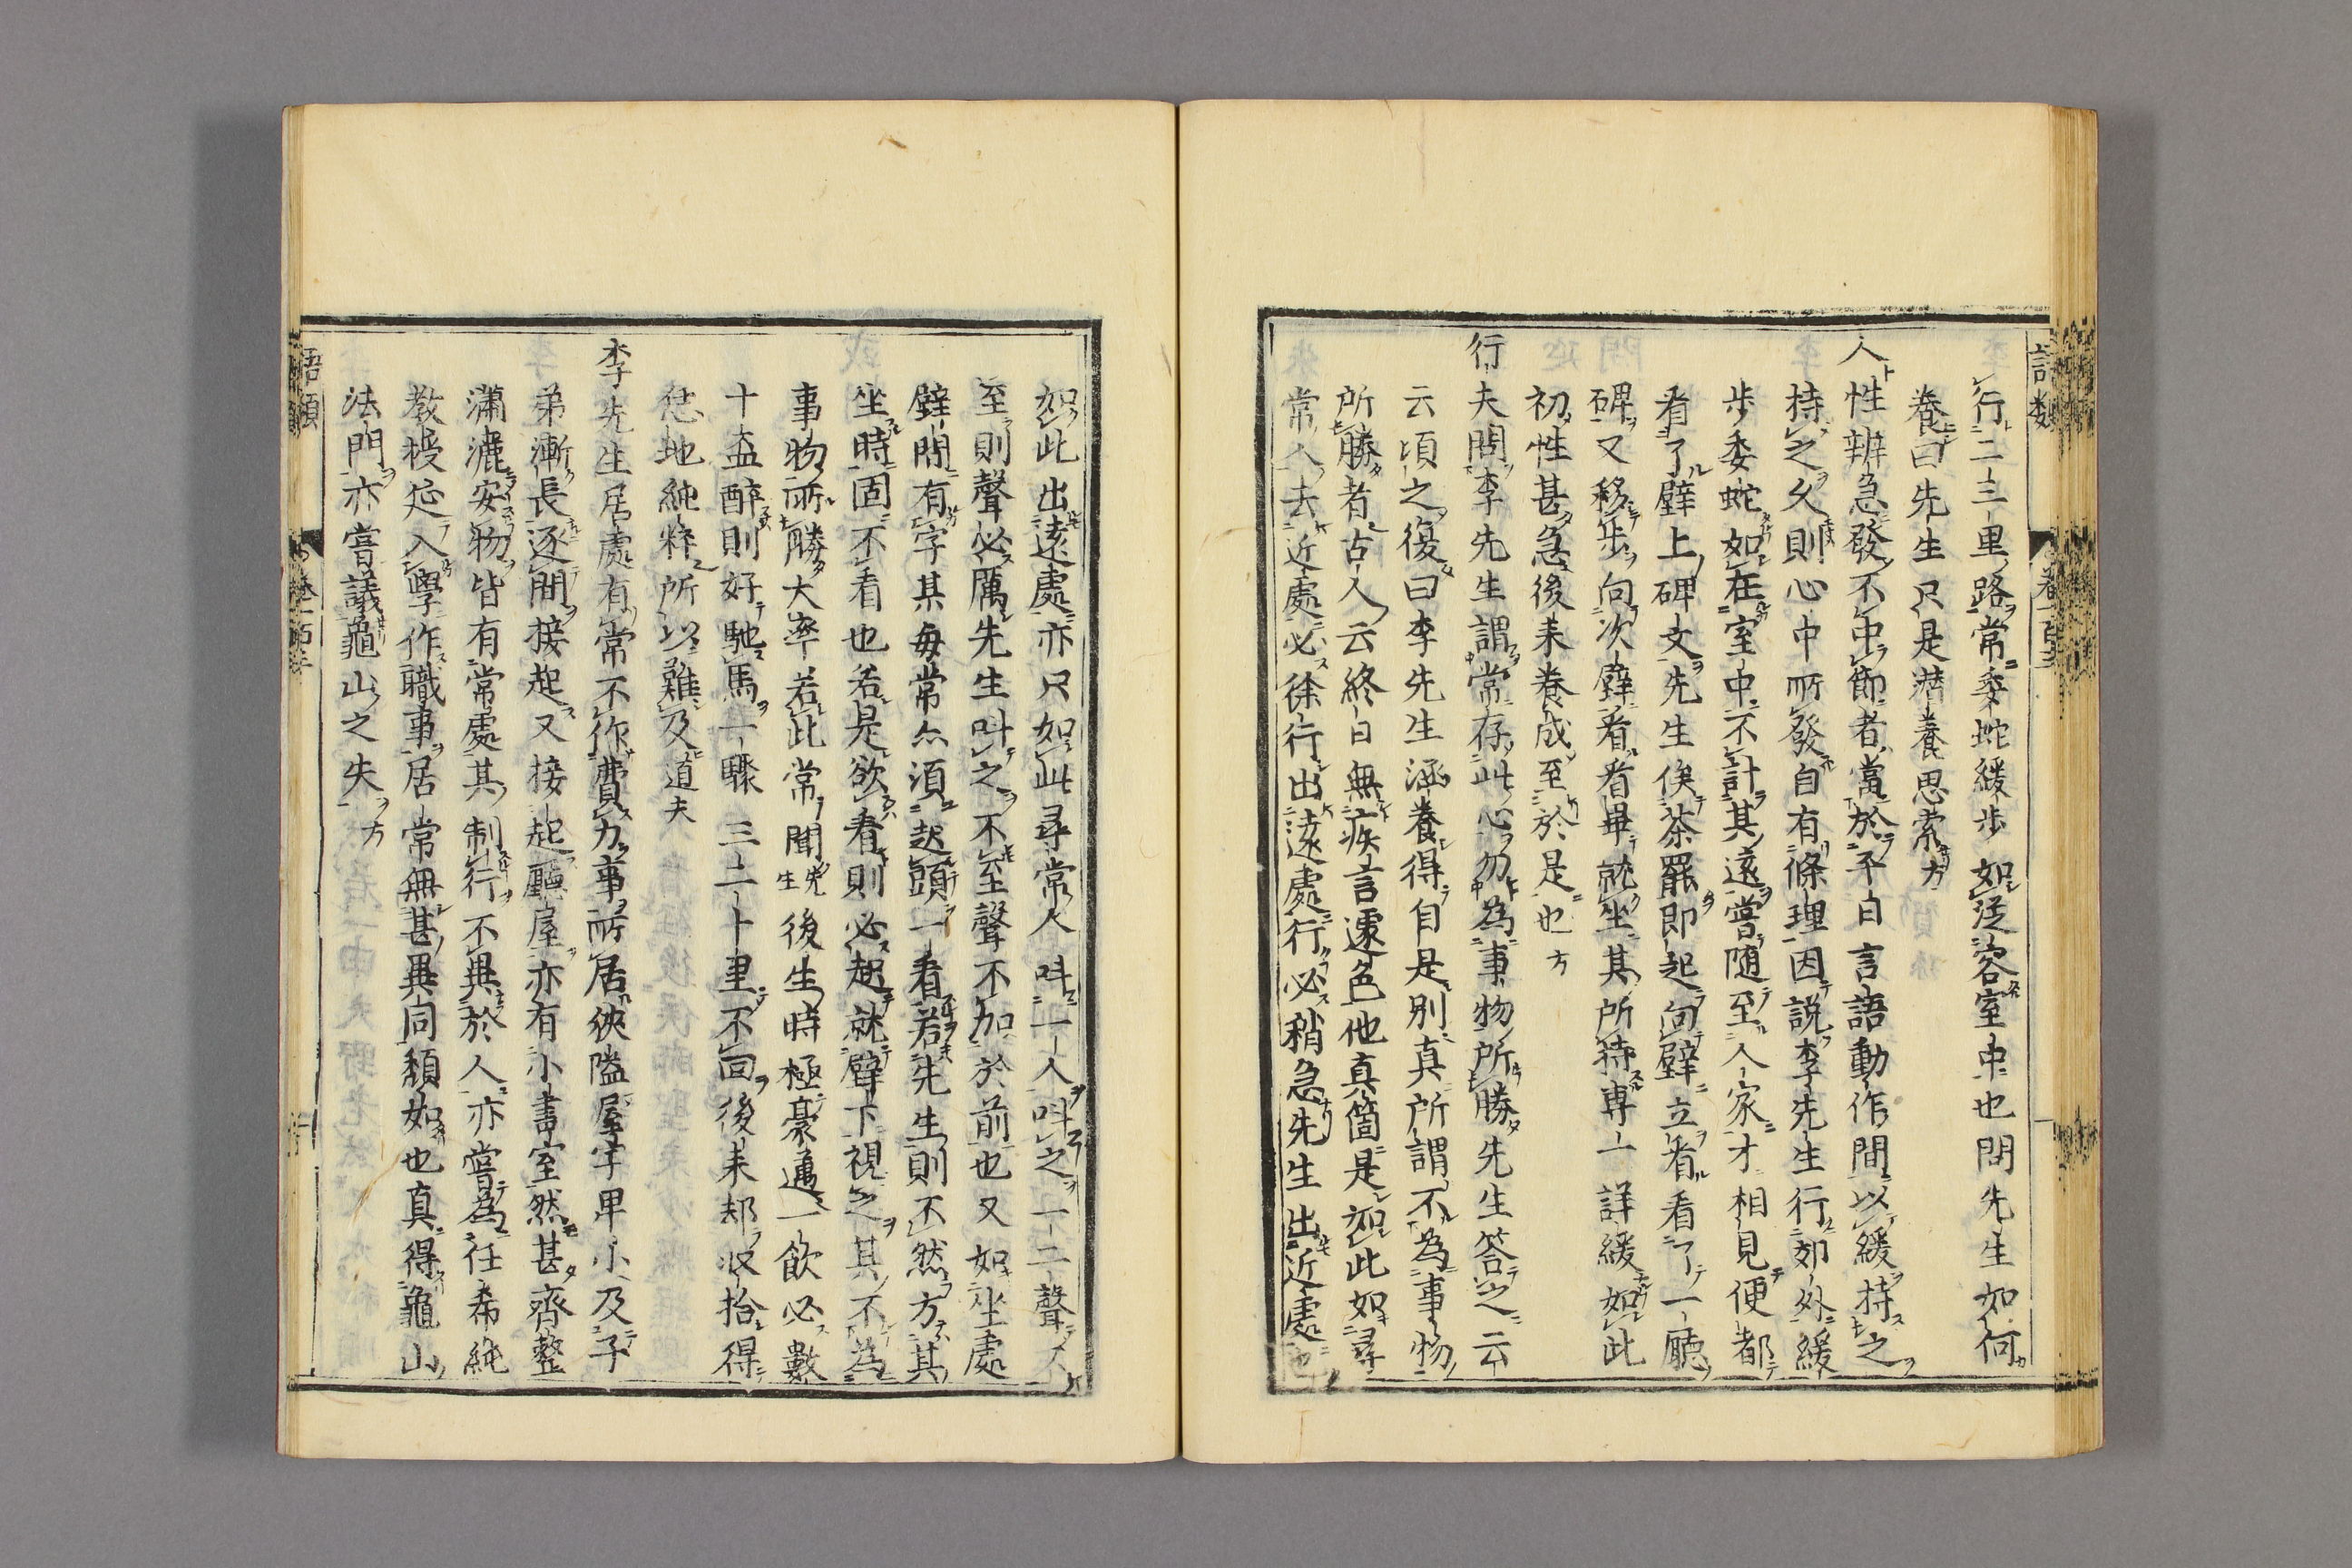 行二三里路常委蛇緩步如從容室中也問先生如何
養曰先生只是潜養思索方
人性辨急發不中節者當於平日言語動作間以緩持之
持之久則心中所發自有條理因説李先生行郊外緩
步委蛇如在室中不計其遠嘗随至人家才相見便都
看了壁上碑文先生俟茶罷即起向壁立看看了一廳
碑又移步向次壁看看畢就坐其所持専一詳緩如此
初性甚急後来養成至於是也方
行夫問李先生謂常存此心勿為事物所勝先生答之云
云頃之復曰李先生涵養得自是別真所謂不為事物
所勝者古人云終日無疾言遽色他真箇是如此如尋
常人去近處必徐行出遠處行必稍急先生出近處
如此出遠處亦只如此尋常人呌一人呌之一二聲不
至則聲必厲先生呌之不至聲不加於前也又如坐處
壁間有字某毎常亦須起頭一看若先生則不然方其
坐時固不看也若是欲看則必起就壁下視之其不為
事物所勝大率若此常聞先生後生時極豪邁一飲必數
十盃醉則好馳馬一驟三二十里不回後来却収拾得
恁地純粹所以難及道夫
李先生居處有常不作費力事所居狹隘屋宇卑小及子
弟漸長逐間接起又接起廳屋亦有小書室然甚齊整
瀟灑安物皆有常處其制行不異於人亦嘗為任希純
教授延入學作職事居常無甚異同頽如也真得龜山
法門亦嘗議龜山之失方
語類